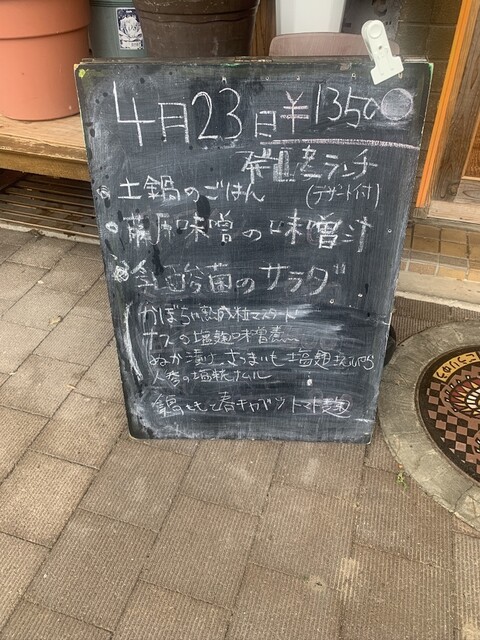 4月23日 ¥1350
ランチ
(デザート付)
土鍋のごはん
味噌の味噌汁
乳酸菌のサラダ
かぼちゃ 粒マスタード
ナスの塩麹味噌煮
ぬか漬け さつまいも塩麹
人参の塩糀ナムル
春キャベツトマト麹